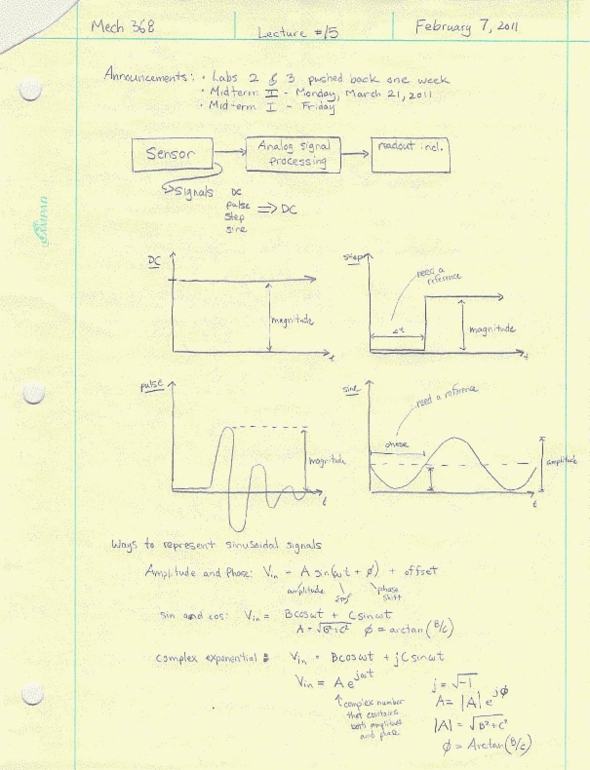 Mech 368
Lecture #15
February 7, 2011
Announcements: • Labs 2 & 3 pushed back one week
• Midterm II - Monday, March 21, 2011
• Midterm I - Friday
Sensor
Analog signal
processing
readout incl.
Signals DC
pulse
step
sine
⇒ DC
DC
magnitude
t
step
need a
reference
Δt
magnitude
t
pulse
magnitude
t
sine
need a reference
phase
amplitude
t
Ways to represent sinusoidal signals
Amplitude and Phase: Vin = A sin(ωt + φ) + offset
amplitude
phase
shift
sin and cos: Vin = Bcosωt + Csinωt
A = √B²+C² φ = arctan(B/C)
complex exponential: Vin = Bcosωt + jCsinωt
Vin = Ae^jωt
j = √-1
↑ complex number
that contains
both amplitude
and phase
A = |A|e^jφ
|A| = √B²+C²
φ = Arctan(B/C)